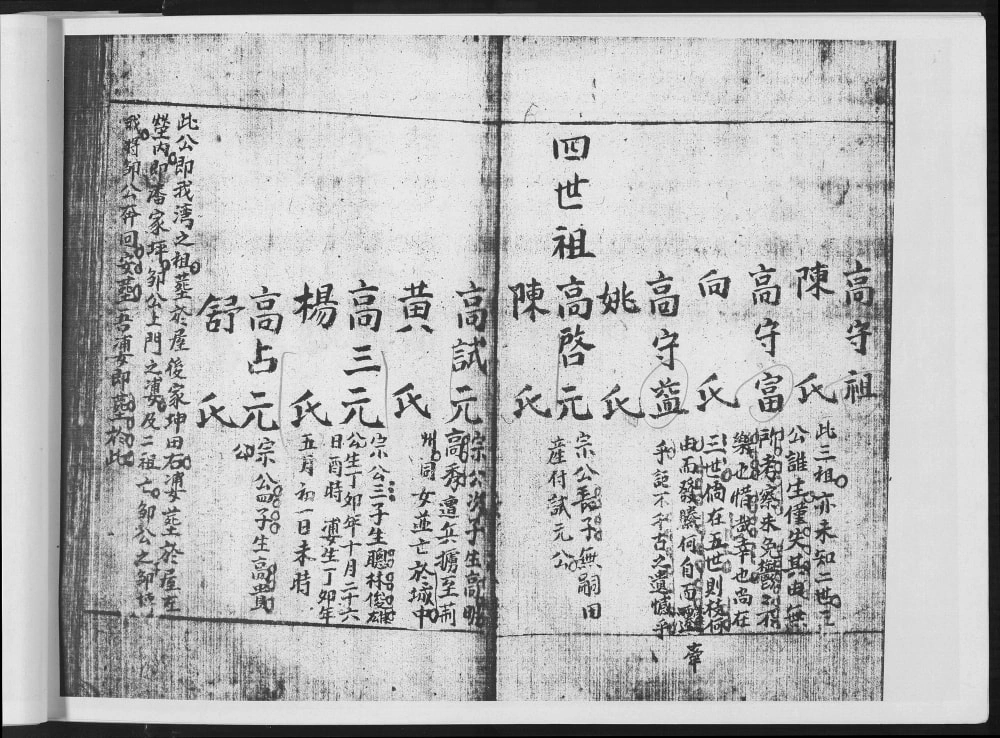 高守祖
陳氏
此二祖亦未知二世三
公誰生僅失其由無
所考察未免
高守富
樂也惜哉幸也尚在
向氏
三世倘在五世則枝
由而發勝何自而
高守益
乎記不千古之遺憾乎
姚氏
四世祖
高啓元
宗公長子無嗣田
產付試元公
陳氏
高試元
宗公次子生高明
高秀遭兵擄至荊
州同女並亡於城中
黃氏
高三元
宗公三子生聰林俊雄
公生丁卯年十月二十六
日酉時 妻生丁卯年
五月初一日未時
楊氏
高占元
宗公四子生高貴
公
舒氏
此公即我灣之祖葬於屋後家坤田右妻葬於屋左
塋內即潘家坪鄒公上門之妻及二祖亡鄒公之
鄒公仵回安葬吾妻即葬於此